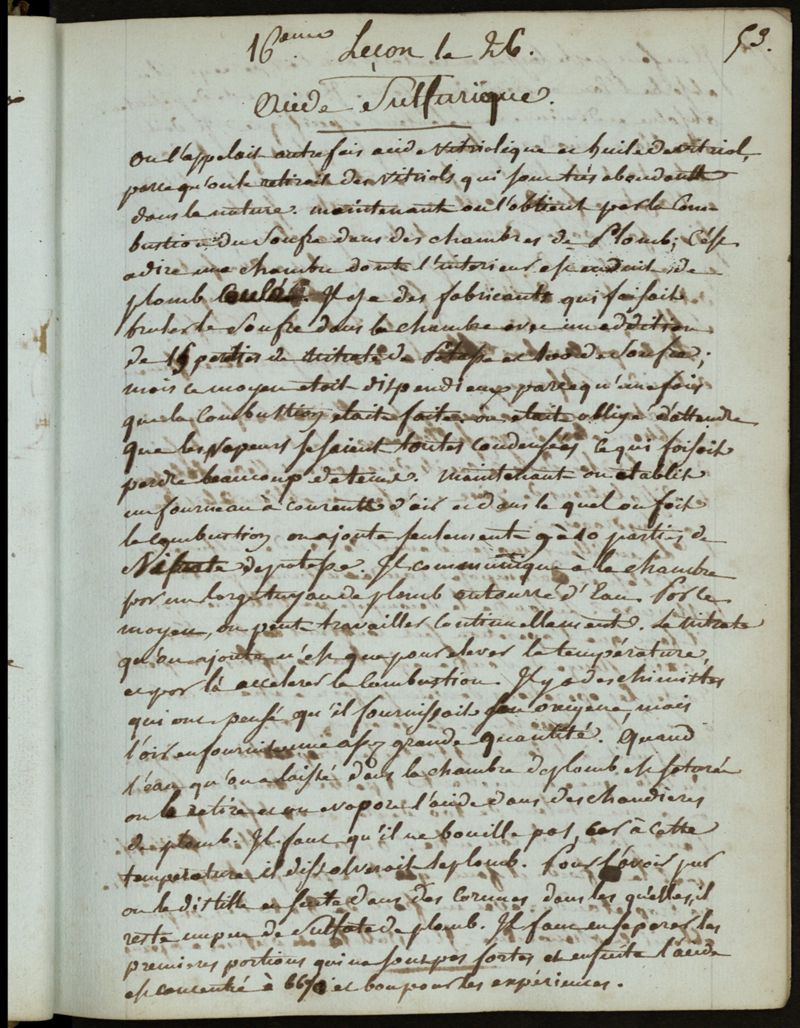 53.
16ème Leçon le 26.
Acide Sulfurique.
On l'appelait autrefois acide vitriolique et huile de vitriol,
parce qu'on le retirait des vitriols qui sont très abondants
dans la nature. maintenant on l'obtient par la Com-
bustion du Soufre dans des chambres de Plomb; C'est
a dire une chambre dont l'interieur est enduit de
plomb. Il y a des fabricants qui faisoit
bruler le Soufre dans la chambre avec une addition
de 15 parties de nitrate de Potasse et 100 de Soufre;
mais ce moyen etoit dispendieux parcequ'une fois
que la Combustion etait faite on etait obligé d'attendre
que les vapeurs fussent toutes condensées, ce qui faisoit
perdre beaucoup de tems. maintenant on etablit
un fourneau à courent d'air et dans le quel on fait
la combustion on ajoute seulement 9 à 10 parties de
Nitrate de potasse. Il communique a la chambre
par un large tuyau de plomb entourré d'Eau. Par ce
moyen, on peut travailler Continuellement. Le nitrate
qu'on ajoute n'est que pour elever la température,
et par là accelerer la Combustion. Il y a des chimistes
qui ont pensé qu'il fournissait son oxigene, mais
l'air en fournit une assez grande quantité. Quand
l'eau qu'on a laissé dans la chambre de plomb est saturée
on la retire et on evapore l'acide dans des chaudieres
de plomb. Il faut qu'il ne bouille pas, car à cette
temperature il dissolverait le plomb. Pour l'avoir pur
on le distille ensuite dans des Cornues, dans les quelles, il
reste un peu de Sulfate de plomb. Il faut en séparer les
premieres portions qui ne sont pas fortes et ensuite l'acide
est concentré à 66° et bon pour les expériences.